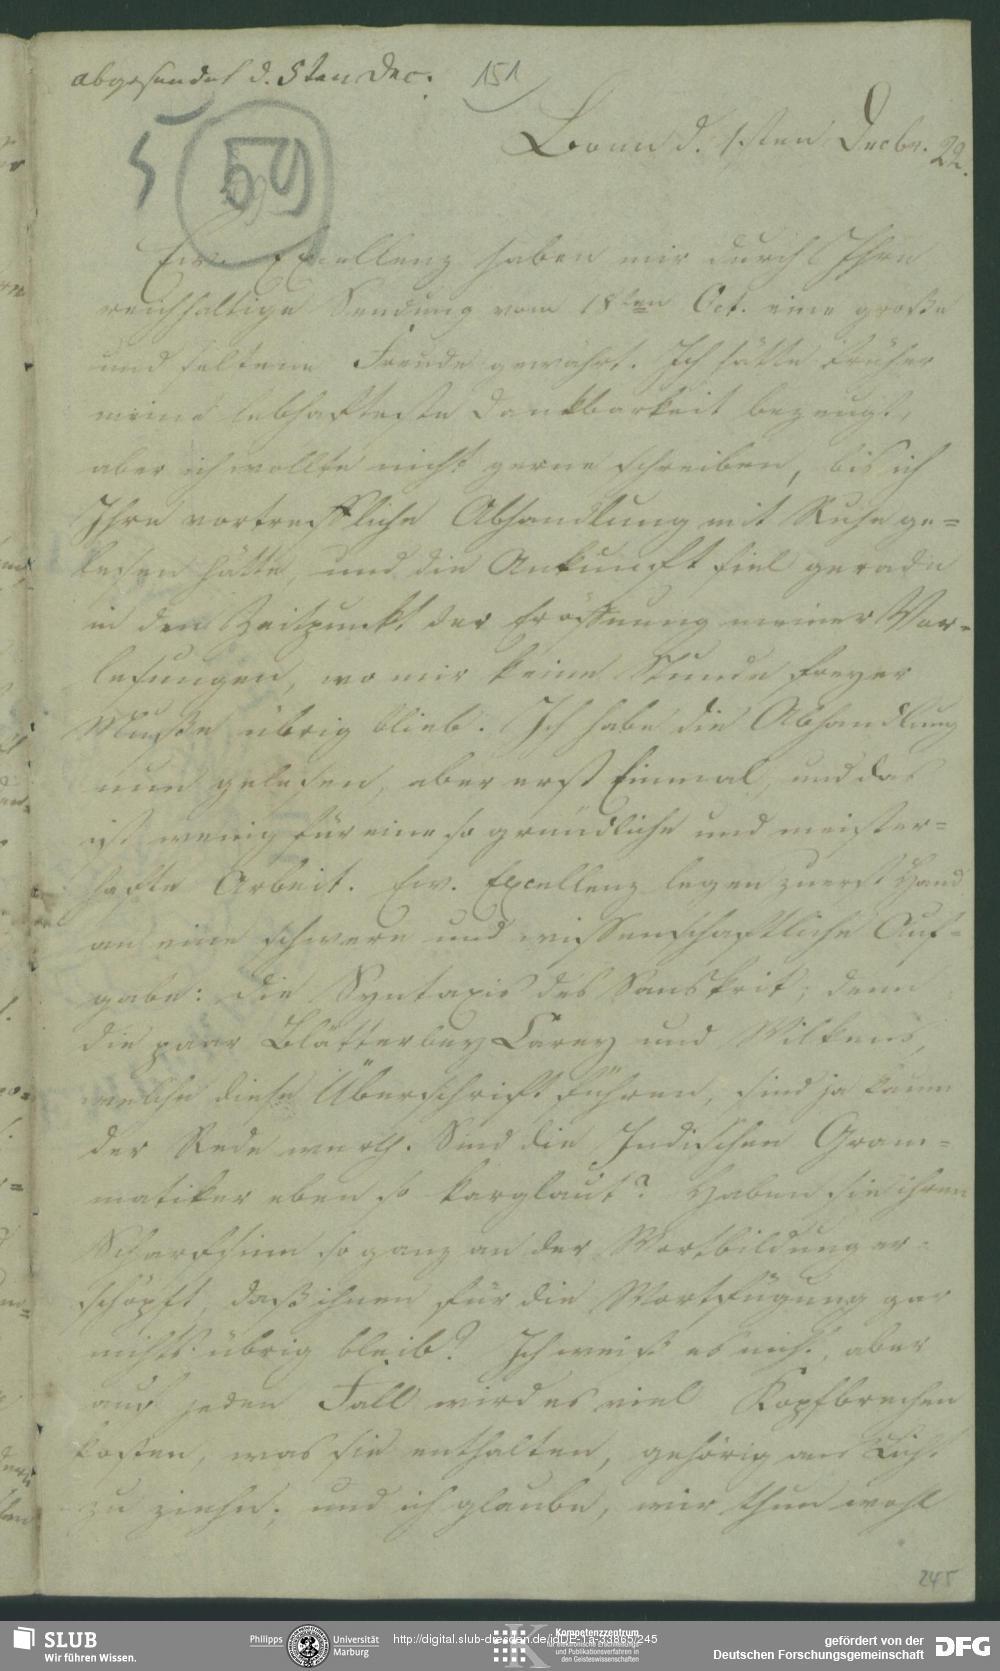 abgesendet d. 5ten Dec. 151
5 59
Bonn d. 1sten Decbr. 22.
Ew. Excellenz haben mir durch Ihre
reichhaltige Sendung vom 18ten Oct. eine große
und seltene Freude gewährt. Ich hätte früher
meine lebhafteste Dankbarkeit bezeugt,
aber ich wollte nicht gerne schreiben, bis ich
Ihre vortreffliche Abhandlung mit Ruhe ge=
lesen hätte, und die Ankunft fiel gerade
in den Zeitpunkt der Eröffnung meiner Vor=
lesungen, wo mir keine Stunde freyer
Muße übrig blieb. Ich habe die Abhandlung
nun gelesen, aber erst Einmal, und das
ist wenig für eine so gründliche und meister=
hafte Arbeit. Ew. Excellenz legen zuerst Hand
an eine schwere und wissenschaftliche Auf=
gabe: die Syntaxis des Sanskrit; denn
die paar Blätter bey Carey und Wilkins,
welche diese Überschrift führen, sind ja kaum
der Rede werth. Sind die Indischen Gram=
matiker eben so karglaut? Haben sie ihren
Scharfsinn so ganz an der Wortbildung er=
schöpft, daß ihnen für die Wortfügung gar
nichts übrig blieb? Ich weiß es nicht, aber
auf jeden Fall wird es viel Kopfbrechen
kosten, was sie enthalten, gehörig ans Licht
zu ziehn; und ich glaube, wir thun wohl
245
SLUB
Wir führen Wissen.
Philipps Universität
Marburg
http://digital.slub-dresden.de/idDE-1a-33865/245
Kompetenzzentrum
für elektronische Erschließungs-
und Publikationsverfahren in
den Geisteswissenschaften
gefördert von der
Deutschen Forschungsgemeinschaft
DFG